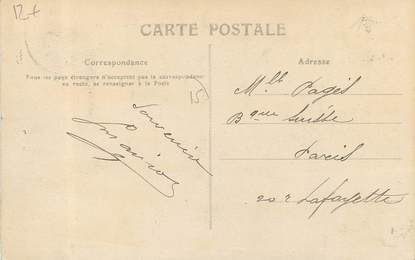 12+
CARTE POSTALE
Correspondance
Tous les pays étrangers n'acceptent pas la correspondance
au recto, se renseigner à la Poste
Adresse
15
Souvenir
Mlle Pagès
Bque Suisse
Paris
20 r Lafayette